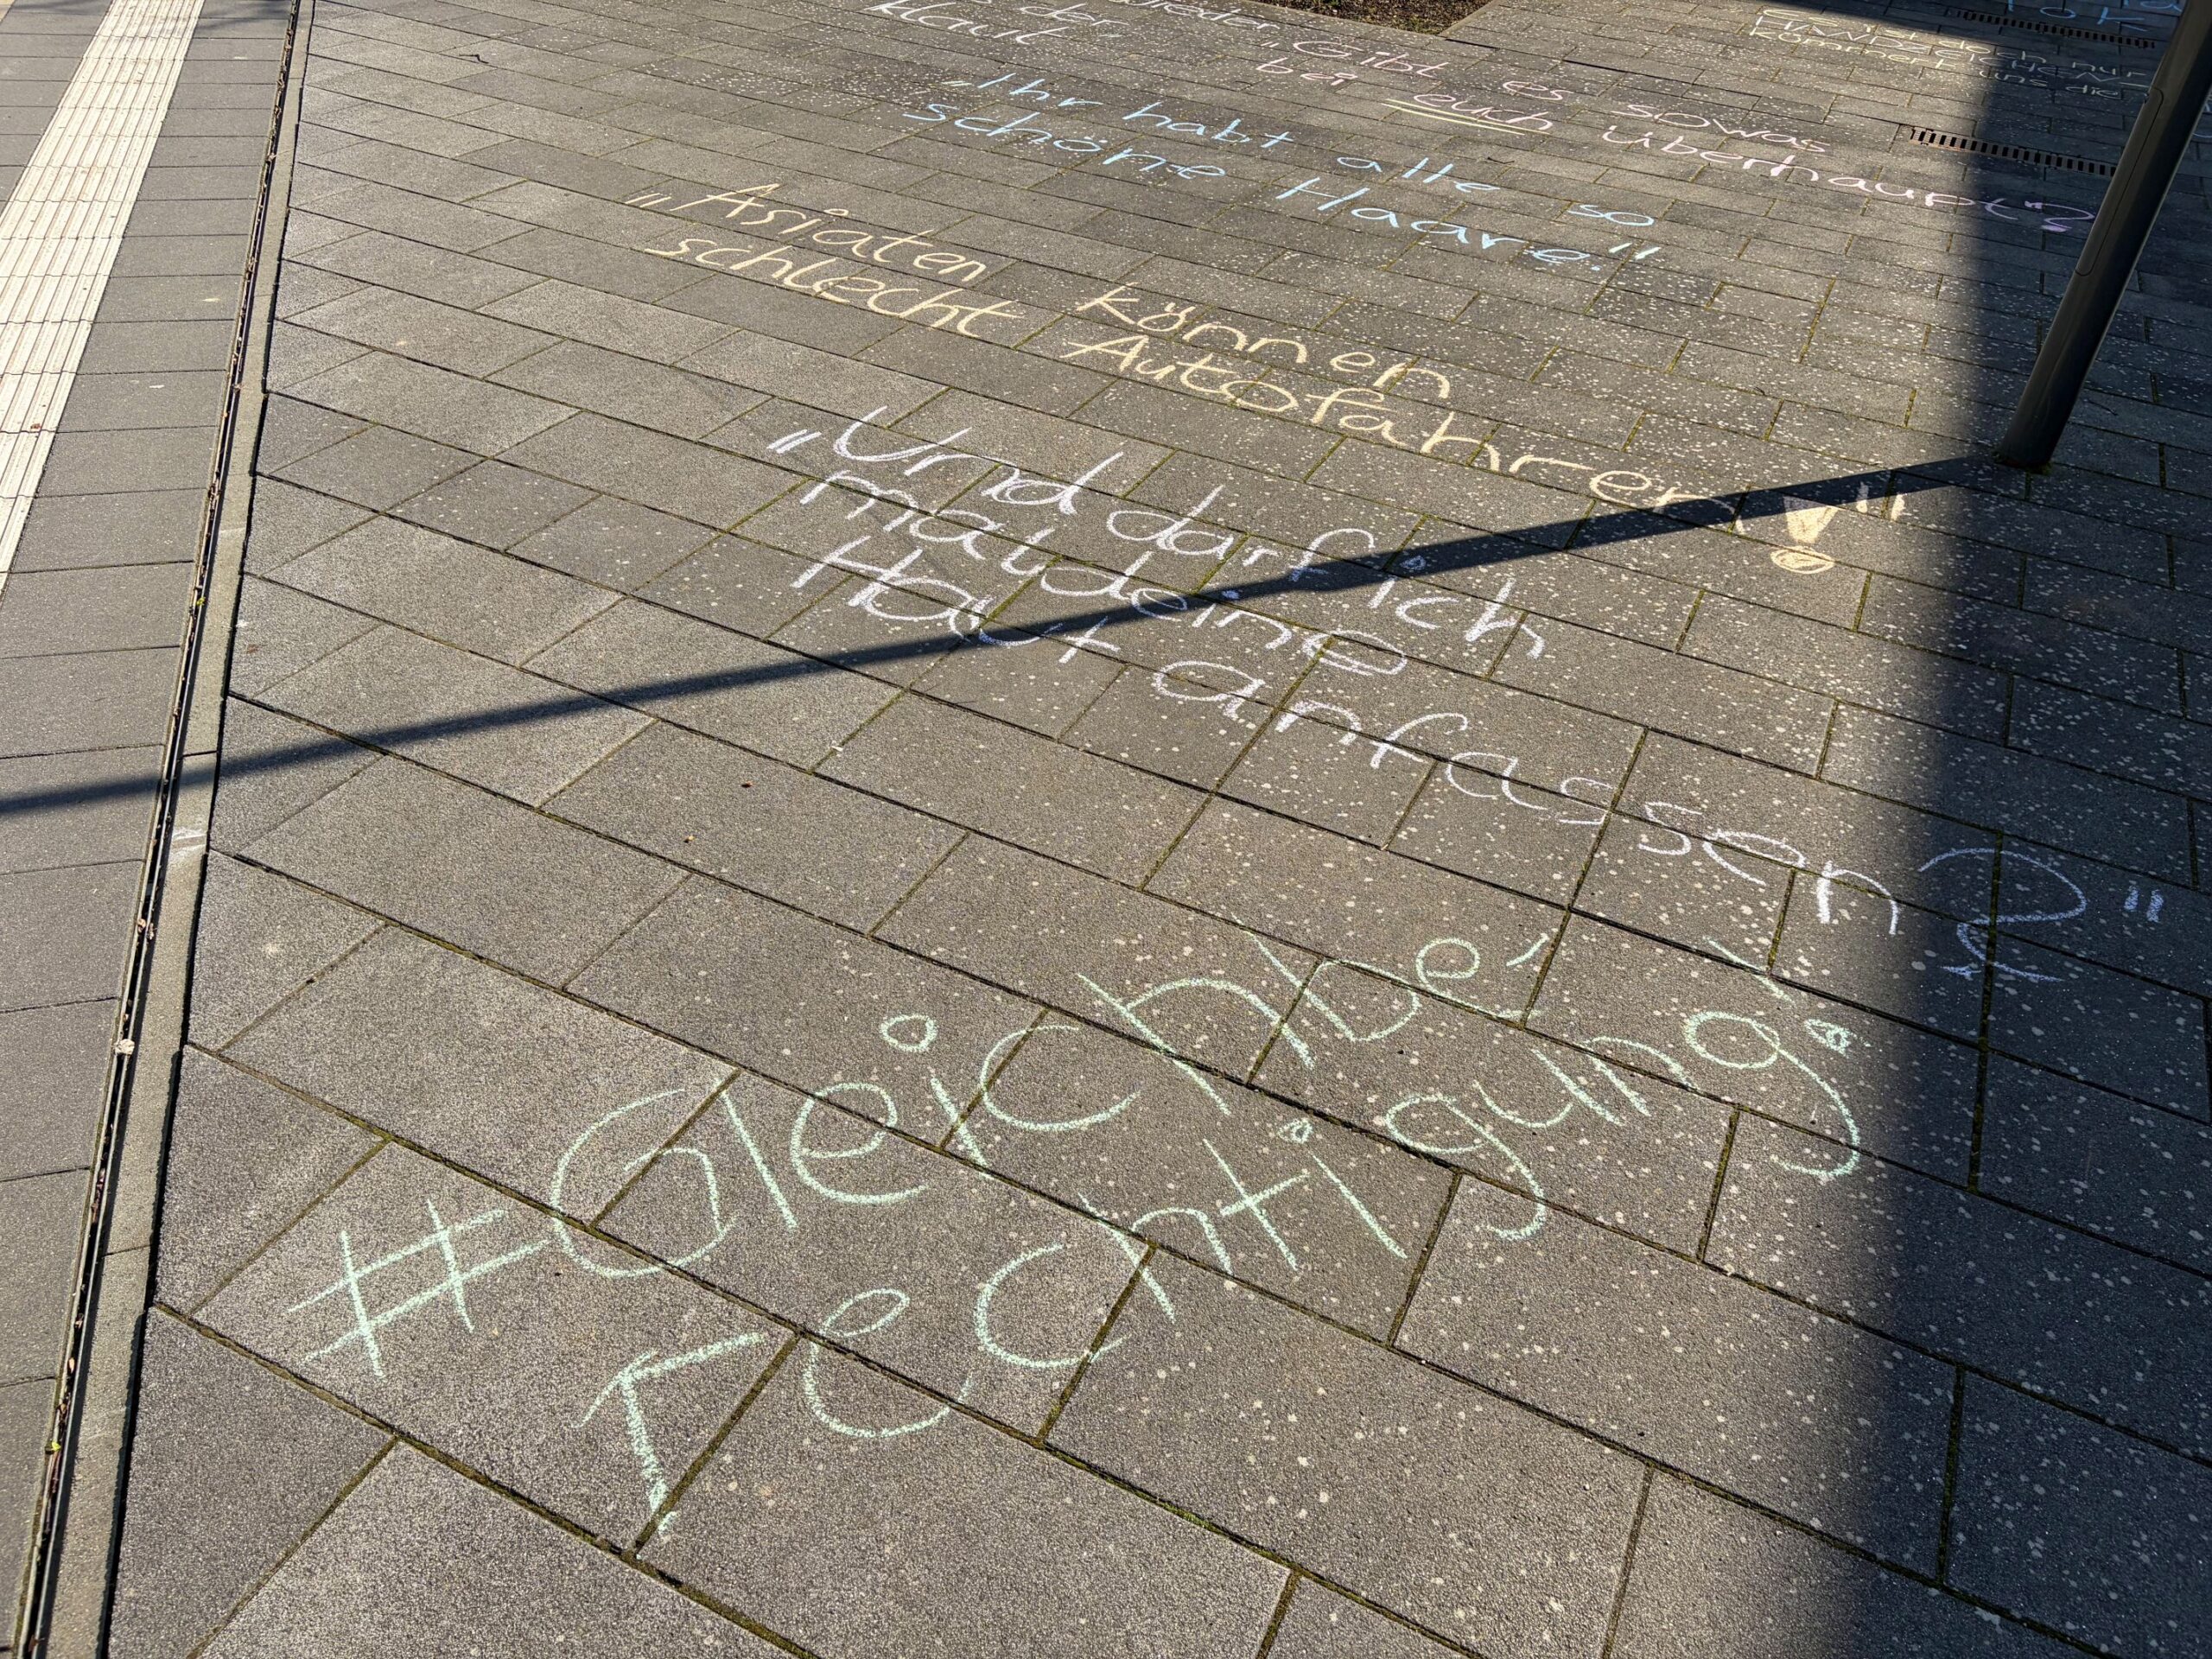 klaut
"Gibt es sowas
bei euch überhaupt?
„Ihr habt alle so
schöne Haare."
„Asiaten können
schlecht Autofahren!"
"Und darf ich
mal deine
Haut anfassen?"
#Gleichbe-
rechtigung!